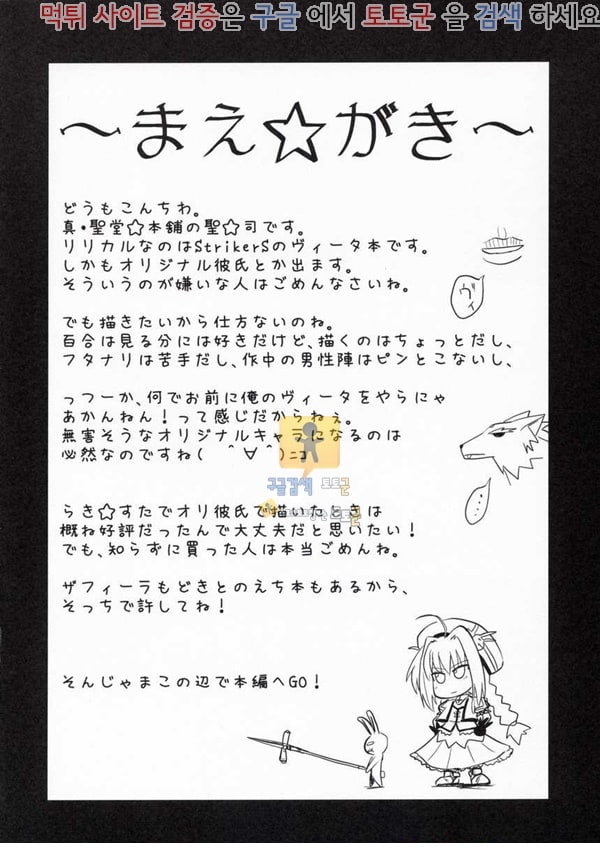 먹튀 사이트 검증은 구글 에서 토토군 을 검색 하세요
～まえ☆がき～
どうもこんちわ。
真・聖堂☆本舗の聖☆司です。
リリカルなのはStrikerSのヴィータ本です。
しかもオリジナル彼氏とか出ます。
そういうのが嫌いな人はごめんなさいね。
ヴィ
でも描きたいから仕方ないのね。
百合は見る分には好きだけど、描くのはちょっとだし、
フタナリは苦手だし、作中の男性陣はピンとこないし、
っつーか、何でお前に俺のヴィータをやらにゃ
あかんねん！って感じだからねぇ。
無害そうなオリジナルキャラになるのは
必然なのですね( ＾∀＾)ﾆｺ
…
구글검색 토토군
らき☆すたでオリ彼氏で描いたときは
토토군
概ね好評だったんで大丈夫だと思いたい！
でも、知らずに買った人は本当ごめんね。
ザフィーラもどきとのえち本もあるから、
そっちで許してね！
そんじゃまこの辺で本編へGO！